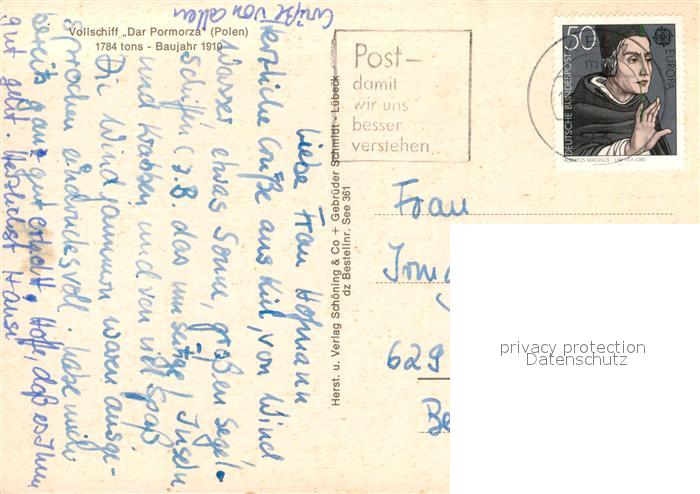 Vollschiff „Dar Pormorza" (Polen)
1784 tons - Baujahr 1910
Liebe Frau Hofmann
Herzliche Grüße aus Kiel, von Wind
Wasser etwas Sonne, großen Segel-
schiffen (z.B. das umseitge) Inseln
und Krabben und von viel Spaß
Die Windjammern waren ausge-
sprochen eindrucksvoll. habe mich
bereits ganz gut erholt. Hoffe, daß es Ihnen
gut geht. Herzlichst Hansi
Grüße von allen
Herst. u. Verlag Schöning & Co + Gebrüder Schmidt - Lübeck
dz Bestellnr. See 361
Post-
damit
wir uns
besser
verstehen
50
DEUTSCHE BUNDESPOST
EUROPA
ALBERTUS MAGNUS · UM 1193-1280
Frau
629
privacy protection
Datenschutz